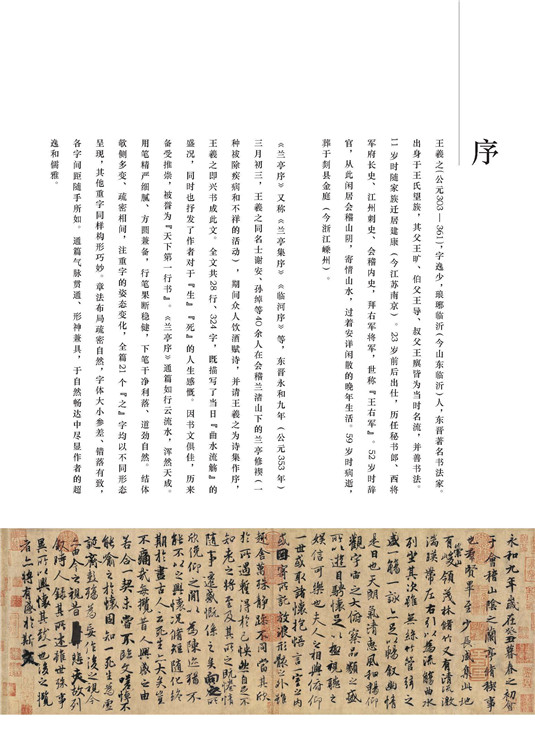 序
王羲之(公元303—361),字逸少,琅琊临沂(今山东临沂)人,东晋著名书法家。
出身于王氏望族,其父王旷、伯父王导、叔父王廙皆为当时名流,并善书法。
11岁时随家族迁居建康(今江苏南京)。23岁前后出仕,历任秘书郎、西将
军府长史、江州刺史、会稽内史,拜右军将军,世称『王右军』。52岁时辞
官,从此闲居会稽山阴,寄情山水,过着安详闲散的晚年生活。59岁时病逝,
葬于剡县金庭(今浙江嵊州)。
《兰亭序》又称《兰亭集序》《临河序》等,东晋永和九年(公元353年)
三月初三,王羲之同名士谢安、孙绰等40余人在会稽兰渚山下的兰亭修禊(一
种祓除疾病和不祥的活动),期间众人饮酒赋诗,并请王羲之为诗集作序,
王羲之即兴书成此文。全文共28行、324字,既描写了当日『曲水流觞』的
盛况,同时也抒发了作者对于『生』『死』的人生感慨。因书文俱佳,历来
备受推崇,被誉为『天下第一行书』。《兰亭序》通篇如行云流水,浑然天成。
用笔精严细腻、方圆兼备,行笔果断稳健,下笔干净利落、遒劲自然。结体
欹侧多变、疏密相间,注重字的姿态变化,全篇21个『之』字均以不同形态
呈现,其他重字同样构形巧妙。章法布局疏密自然,字体大小参差、错落有致,
各字间距随手所如。通篇气脉贯通、形神兼具,于自然畅达中尽显作者的超
逸和儒雅。
永和九年歲在癸丑暮春之初會
于會稽山陰之蘭亭脩稧事
也羣賢畢至少長咸集此地
有崇山峻領茂林脩竹又有清流激
湍暎帶左右引以為流觴曲水
列坐其次雖無絲竹管弦之
盛一觴一詠亦足以暢敘幽情
是日也天朗氣清惠風和暢仰
觀宇宙之大俯察品類之盛
所以遊目騁懷足以極視聽之
娛信可樂也夫人之相與俯仰
一世或取諸懷抱悟言一室之內
或因寄所託放浪形骸之外雖
趣舍萬殊靜躁不同當其欣
於所遇暫得於己怏然自足不
知老之將至及其所之既惓情
隨事遷感慨係之矣向之所
欣俛仰之間以為陳迹猶不
能不以之興懷況脩短隨化終
期於盡古人云死生亦大矣豈
不痛哉每攬昔人興感之由
若合一契未嘗不臨文嗟悼不
能喻之於懷固知一死生為虛
誕齊彭殤為妄作後之視今
亦由今之視昔悲夫故列
敘時人錄其所述雖世殊事
異所以興懷其致一也後之攬
者亦將有感於斯文